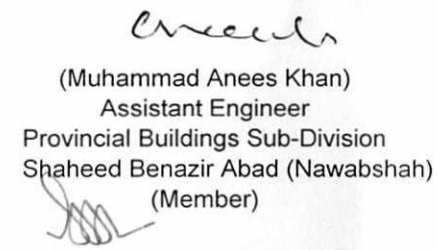 (Muhammad Anees Khan)
Assistant Engineer
Provincial Buildings Sub-Division
Shaheed Benazir Abad (Nawabshah)
(Member)